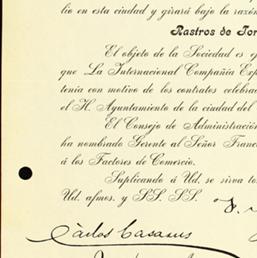 lio en esta ciudad y girará bajo la razón
Rastros de Tor
El objeto de la Sociedad es e
que La Internacional Compañía Exp
tenía con motivo de los contratos celebra
el H. Ayuntamiento de la ciudad del
El Consejo de Administración
ha nombrado Gerente al Señor Franc
á los Factores de Comercio.
Suplicando á Ud. se sirva to
Ud. afmos. y SS. SS.
Carlos Casasus